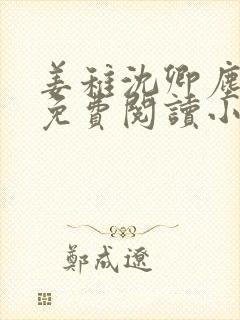 姜稚沈卿塵
免費閱讀小
鄭成遼